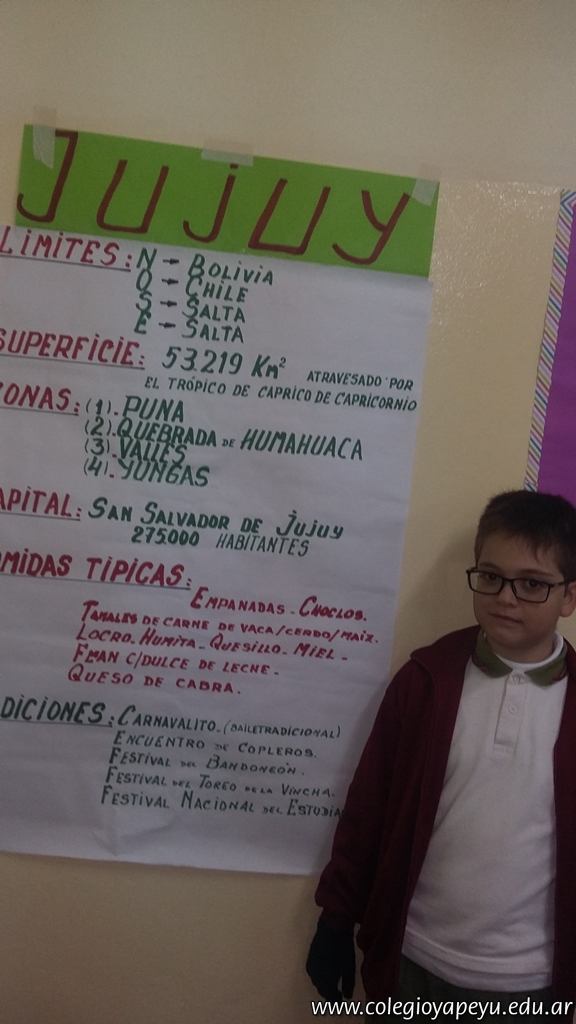 JUJUY
LIMITES: N → BOLIVIA
O → CHILE
S → SALTA
E → SALTA
SUPERFICIE: 53.219 Km² ATRAVESADO POR
EL TRÓPICO DE CAPRICO DE CAPRICORNIO
ONAS: (1).PUNA
(2).QUEBRADA DE HUMAHUACA
(3).VALLES
(4).YUNGAS
APITAL: SAN SALVADOR DE JUJUY
275.000 HABITANTES
MIDAS TIPICAS:
EMPANADAS - CHOCLOS.
TAMALES DE CARNE DE VACA/CERDO/MAIZ.
LOCRO. HUMITA - QUESILLO - MIEL -
FLAN C/DULCE DE LECHE -
QUESO DE CABRA.
DICIONES: CARNAVALITO - (BAILETRADICIONAL)
ENCUENTRO DE COPLEROS.
FESTIVAL DEL BANDONEÓN.
FESTIVAL DEL TOREO DE LA VINCHA.
FESTIVAL NACIONAL DEL ESTUDIA
www.colegioyapeyu.edu.ar